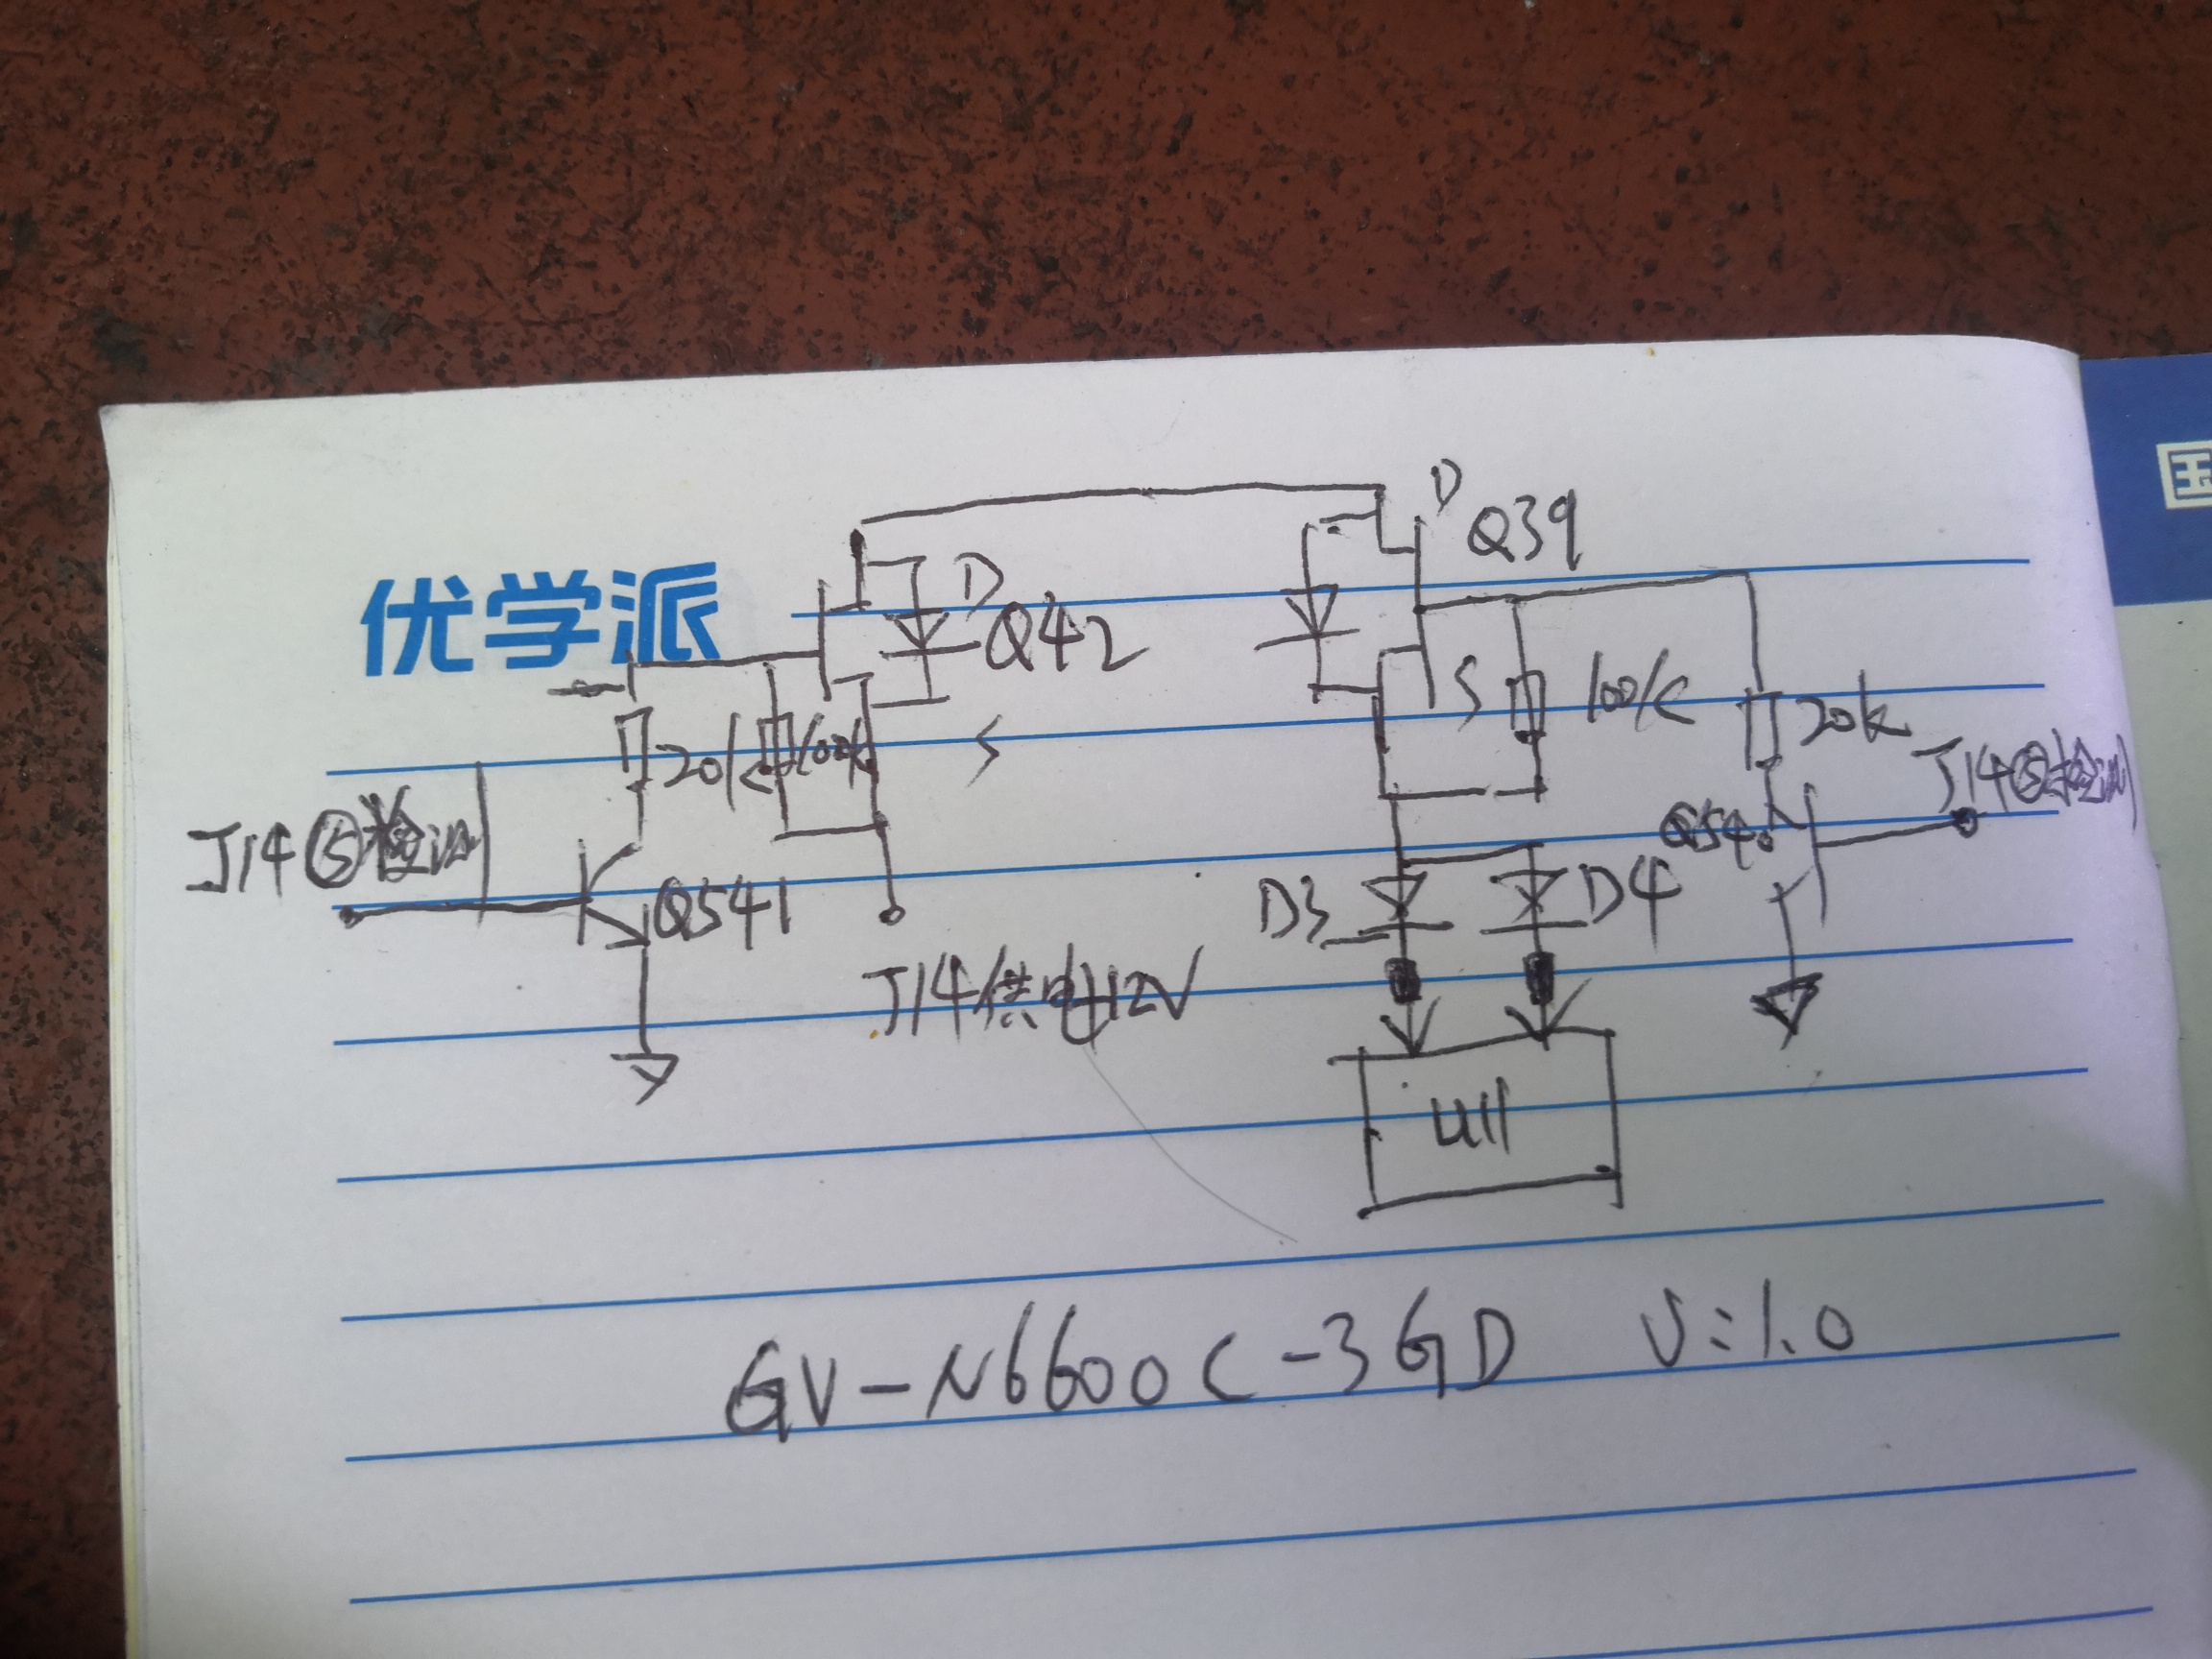 国
D
Q39
优学派
D
Q42
S
100k
20k
20k
100k
S
J14⑤检测
J14⑤检测
Q540
Q541
D3
D4
J14供电12V
U11
GV-N6600C-3GD V:1.0